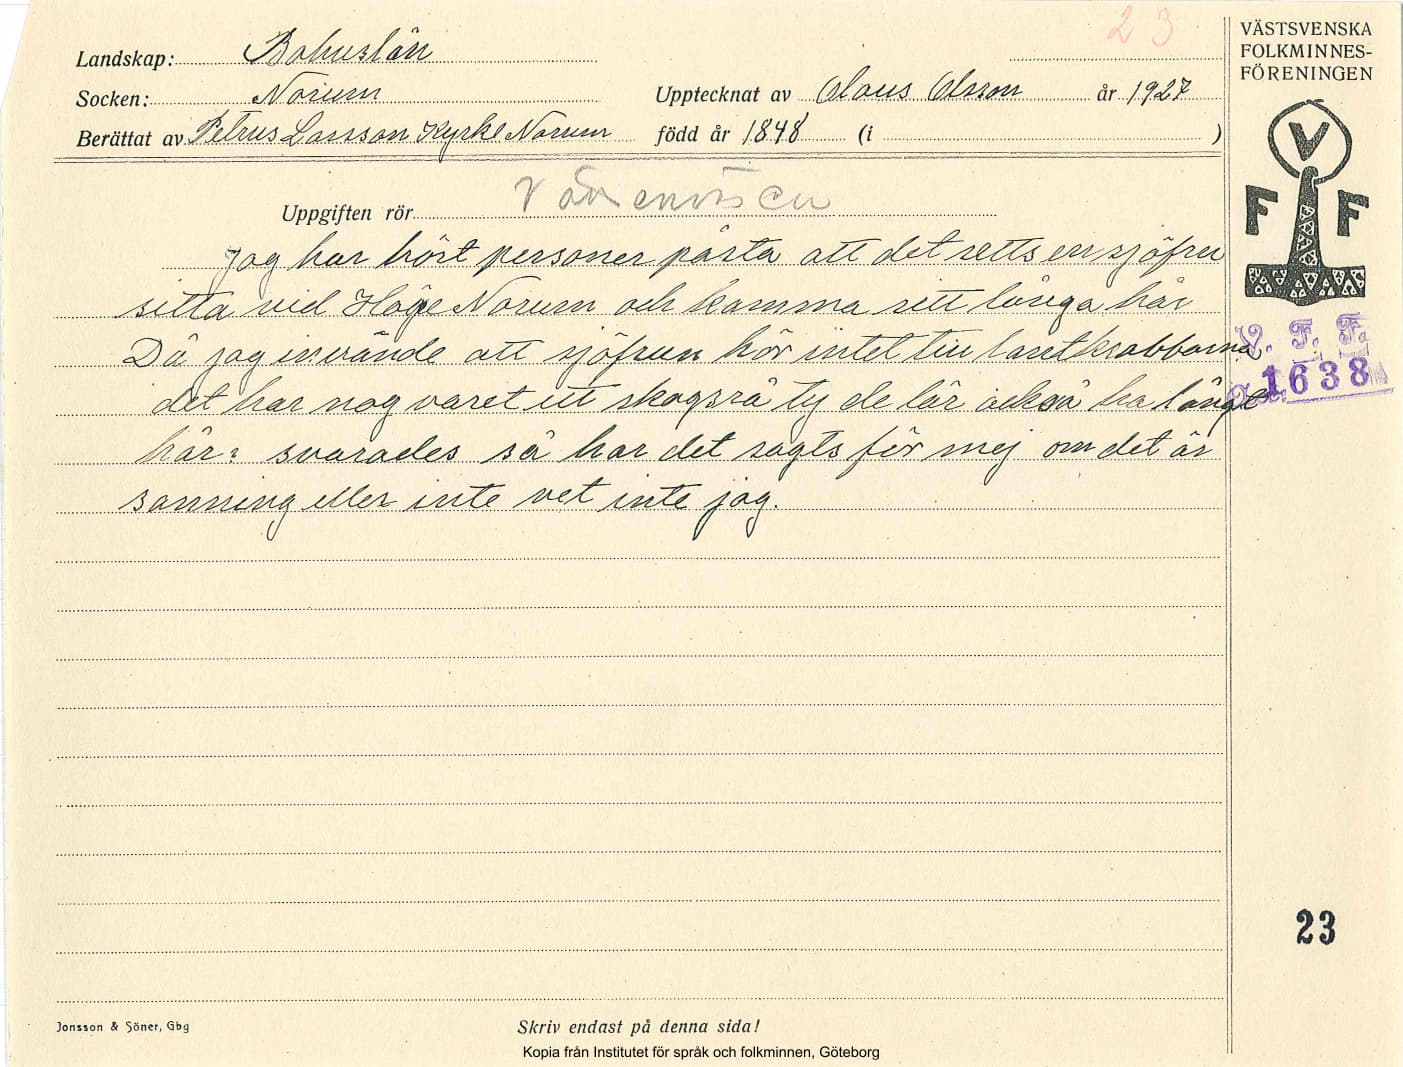 23
VÄSTSVENSKA
FOLKMINNES-
FÖRENINGEN
Landskap: Bohuslän
Socken: Norum
Upptecknat av Olaus Olsson år 1927
Berättat av Petrus Larsson Kyrke Norum född år 1848 (i )
V
F F
Uppgiften rör Vattenväsen
Jag har hört personer påsta att det setts en sjöfru
sitta vid Höge Norum och kamma sitt långa hår
Då jag invände att sjöfrun hör intet till
det har nog varet ett skogsrå ty de lär också ha långt
hår: svarades så har det sagts för mej om det är
sanning eller inte vet inte jag.
V. F. F.
1638
23
Jonsson & Söner, Gbg
Skriv endast på denna sida!
Kopia från Institutet för språk och folkminnen, Göteborg